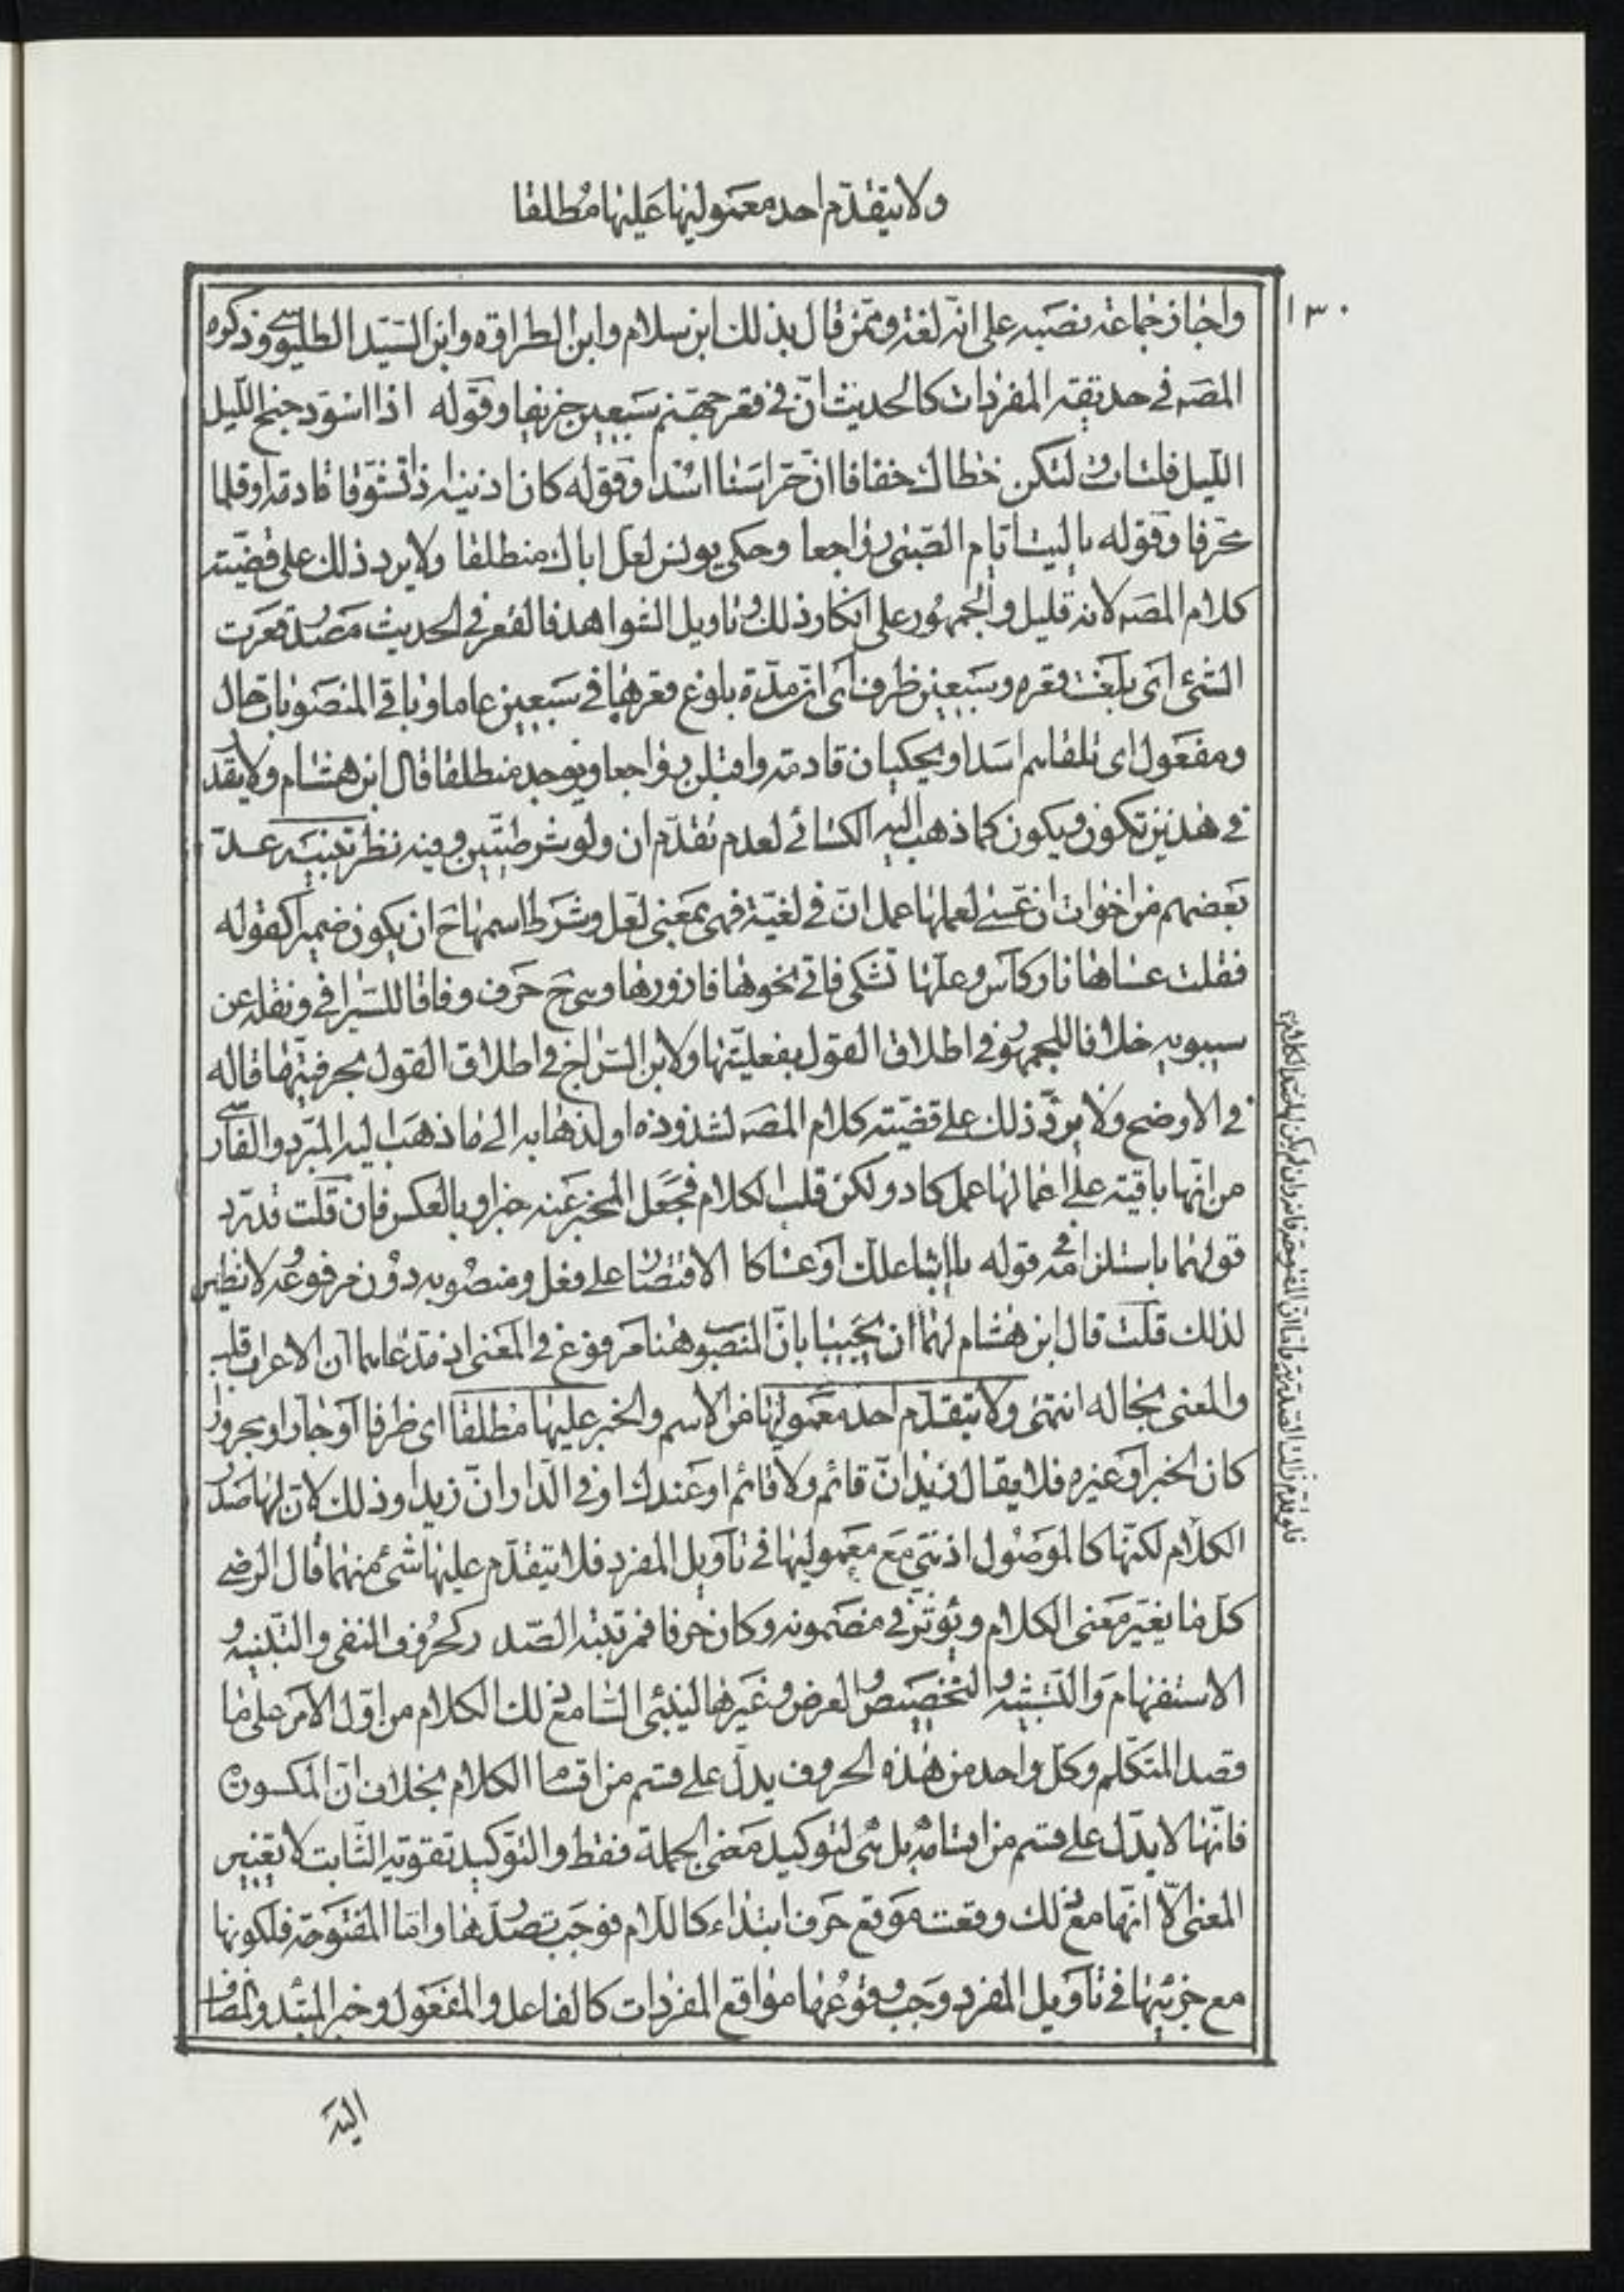 ولا يتقدّم احد معموليها عليها مطلقا
١٣٠
واجاز جماعة نصبه على انّه لغة وممّن قال بذلك ابن سلام وابن الطراوة وابن السّيد الطليوسى وذكره
المصه فى حديقة المفردات كالحديث انّ فى قعر جهنّم سبعين خريفا وقوله اذا اسودّ جنح اللّيل
اللّيل فلتات ولتكن خطاك خفافا انّ حراسنا اسدا وقوله كان اذنيه اذا تشوّفا قادمة او قلما
محرّفا وقوله يا ليت ايام الصّبى رواجعا وحكى يونس لعلّ اباك منطلقا ولا يرد ذلك على قضيّة
كلام المصه لانه قليل والجمهور على انكار ذلك وتاويل الشواهد فالقعر فى الحديث مصدر قعرت
الشئ اى بلغت قعره وسبعين ظرف اى انّ مدّة بلوغ قعرها فى سبعين عاما وباقى المنصوبات حال
ومفعول اى تلقاهم اسدا ويحكيان قادمة واقبلن رواجعا ويوجد منطلقا قال ابن هشام ولا يقدّر
فى هذين تكون ويكون كما ذهب اليه الكسائى لعدم تقدّم ان ولو شرطيّتين وفيه نظر تنبيه عدّ
بعضهم من اخوات ان عسى لعملها عمل انّ فى لغيّة فهى بمعنى لعل وشرط اسمها ح ان يكون ضميرا كقوله
فقلت عساها نار كأس وعلّها تشكى فاتى نحوها فازورها وهى ح حرف وفاقا للسّيرافى ونقله عن
سيبويه خلافا للجمهور فى اطلاق القول بفعليّتها ولابن السّراج فى اطلاق القول بحرفيّتها قاله
فى الاوضح ولا يردّ ذلك على قضيّة كلام المصه لشذوذه او لذهابه الى ما ذهب اليه المبرّد والفارسى
من انّها باقية على اعمالها عمل كاد ولكن قلب الكلام فجعل المخبر عنه خبرا وبالعكس فان قلت قد يردّ
قولهما باستلزامه فى قوله يا ابتا علّك او عساكا الاقتصار على فعل ومنصوبه دون مرفوعه ولا نظير
لذلك قلت قال ابن هشام لهما ان يجيبا بانّ المنصوب هنا مرفوع فى المعنى اذ مدّعاهما انّ الاعراب قلب
والمعنى بحاله انتهى ولا يتقدّم احد معموليها من الاسم والخبر عليها مطلقا اى ظرفا او جارا ومجرورا
كان الخبر او غيره فلا يقال زيد انّ قائم ولا قائم او عندك او فى الدّار انّ زيدا وذلك لانّ لها صدر
الكلام لكنّها كالموصول اذ هى مع معموليها فى تأويل المفرد فلا يتقدّم عليها شئ منهما قال الرضى
كلّ ما يغيّر معنى الكلام ويؤثّر فى مضمونه وكان حرفا فمرتبته الصّدر كحروف النفى والتّنبيه و
الاستفهام والتّشبيه والتّحضيض والعرض وغيرها لينبئ السّامع ذلك الكلام من اوّل الامر على ما
قصد المتكلّم وكلّ واحد من هذه الحروف يدلّ على قسم من اقسام الكلام بخلاف انّ المكسورة
فانّها لا يدلّ على قسم من اقسامه بل هى لتوكيد معنى الجملة فقط والتّوكيد تقوية الثّابت لا تغيير
المعنى الّا انّها مع ذلك وقعت موقع حرف ابتداء كاللّام فوجب تصدّرها وامّا المفتوحة فلكونها
مع جزئيها فى تأويل المفرد وجب وقوعها مواقع المفردات كالفاعل والمفعول وخبر المبتدا والمضاف
اليه